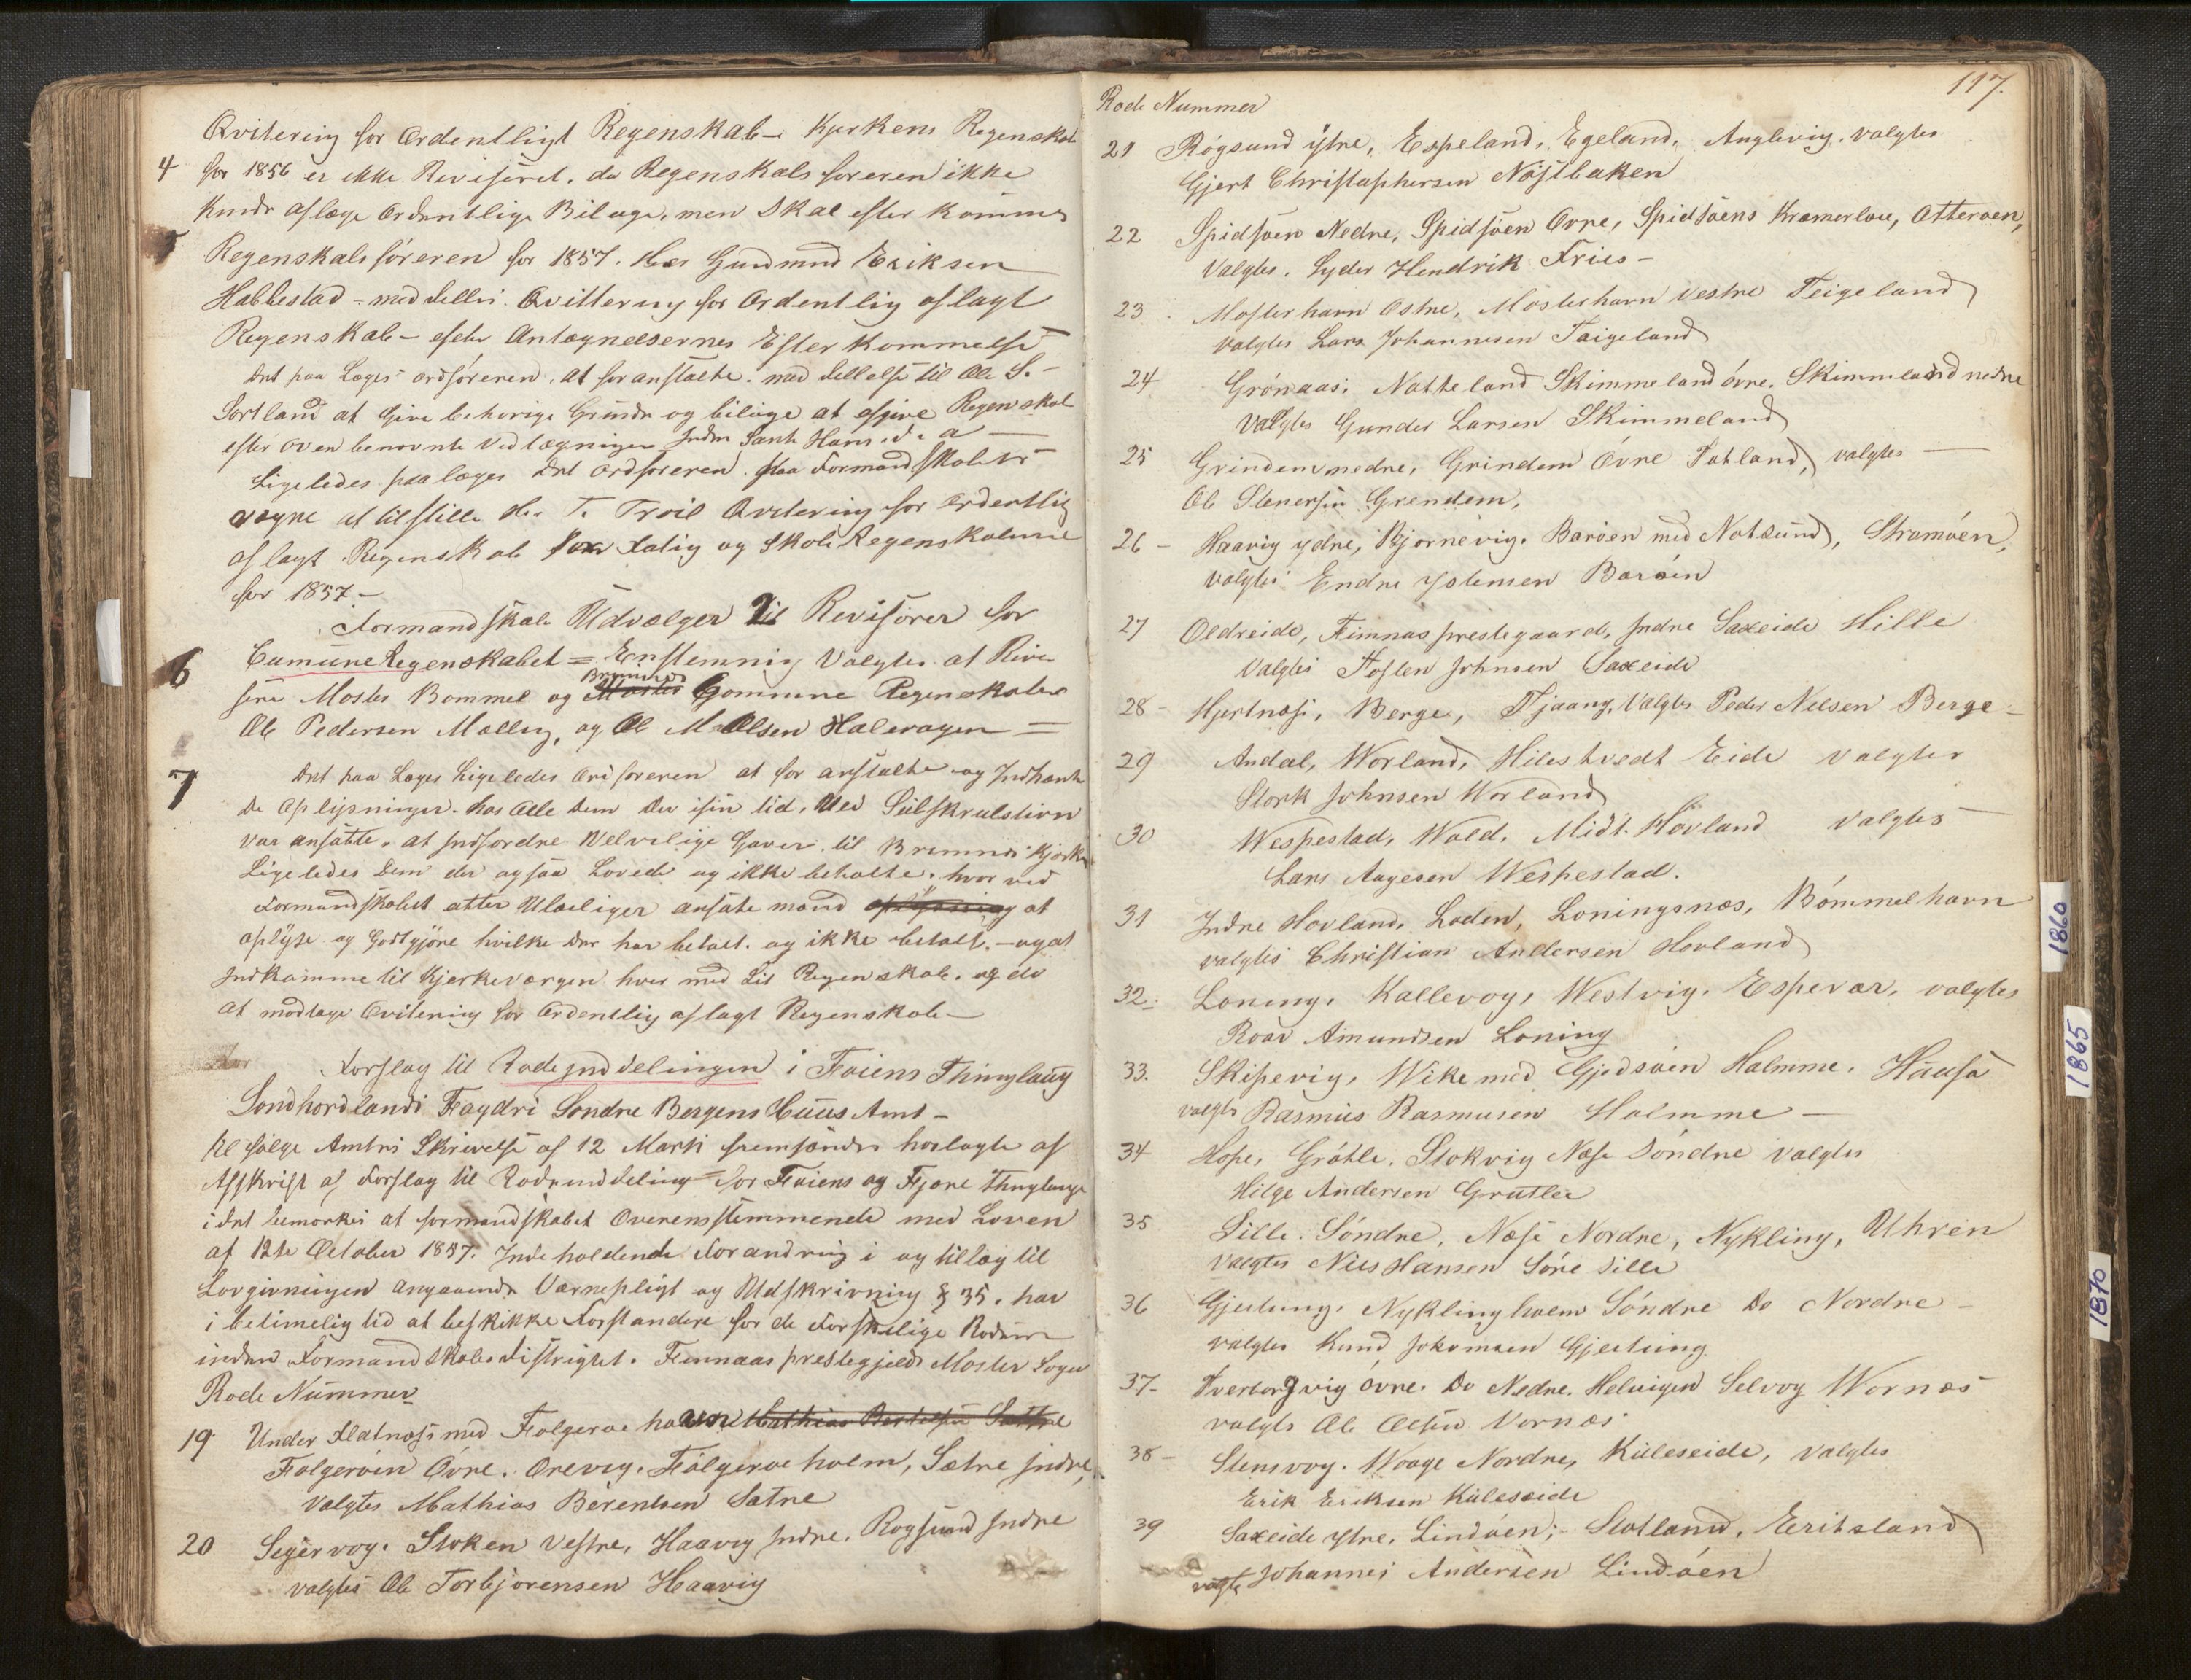 Qvitering for Ordentligt Regenskab – Kjerkens Regenskab
4 for 1856 er ikke Reviseret, da Regenskabsføreren ikke
kunde aflæge Ordentlige Bilage, men Skal efter komme
5 Regenskabsføreren for 1857. Hr Gudmund Eriksen
Habbestad – meddelles Qvittering for Ordentlig aflagt
Regenskab – efter Antægnelsernes Efterkommelse
Det paa Læges Ordføreren, at foranstalte meddellelse til Ole S.
Sortland at Give behørige Grunde og bilage at afgive Regenskab
efter ovenbenævnte Vedtægninger Inden Sanct Hans d. a
Ligeledes paalæges det Ordføreren paa Formandskabets
vægne at tilstille Hr T. Troil Qvitering for Ordentlig
aflagt Regenskab for Fatig og Skole Regenskaberne
for 1857 –
Formandskab Udvælger til Revisorer for
6 Comune Regenskabet = Enstemmig Valgtes at Revi
sere Moster Bømmel og Bremnes Gommune Regenskaber
Ole Pedersen Mælling, og Ole M Olsen Halevagen =
7 Det paa Læges Ligeledes Oriføreren at foranstalte og Indhente
De Oplysninger hos Alle dem der i sin tid, Ved Subskrubstion
var ansatte, at Indfordre Velvelige Gaver til Bremnes Kjerke
Ligeledes Dem der ogsaa Lovede og ikke betalte, hvor ved
Formandskabet atter Uleiliger ansate mænd oplysning at
oplyse og Godtgjøre hvilke der har betalt og ikke betalt, – og at
Indkomme til Kjerkeværgen hver med sit Regenskab, og da
at modtage Qvitering for Ordentlig aflagt Regenskab –
Forslag til Rodeinddelingen i Føiens Thinglaug
Søndhordlands Fogdri Søndre Bergens Huus Amt –
Ifølge Amtes Skrivelse af 12 Marts fremsændes hoslagte af
Afskrift af Forslag til Rodeinddeling = for Føiens og Fjære thinglauge
i det bemærkes at formandskabet Overensstemmende med Loven
af 12te October 1857. Indeholdende Forandring i og tillæg til
Lovgivningen angaaende Værnepligt og Udskrivning § 35, har
i betimelig tid at beskikke Forstandere for de Forskelige Roder
inden Formandskabs distrigtet. Finnaas prestegjeld Moster Sogn
Rode Nummer
19 Under Flatnæs med Folgerøe holmen Mathias Berentsen Sættre
Folgerøen Øvre, Orevig, Folgerøe holm, Sætre Indre,
Valgtes Mathias Berentsen Sætre
20 Segervog, Stoken Vestre, Haavig Indre, Rogsund Indre
valgtes Ole Torbjørensen Haavig
117.
Rode Nummer
21 Røgsund ÿtre, Espeland, Egeland, Anglevig, valgtes
Gjert Christophersen Nøstbaken
22 Spidsøen Nedre, Spidsøen Øvre, Spidsøens Kramerleie, Otterøen,
Valgtes Lyder Hendrik Fries –
23 Mosterhavn Østre, Mosterhavn Vestre Teigeland
valgtes Lars Johannesen Taigeland
24 Grønaas, Natteland Skimmeland øvre, Skimmeland nedre
Valgtes Gunder Larsen Skimmeland
25 Grindem nedre, Grindem Øvre Totland, valgtes
Ole Stenersen Grendem,
26 – Haavig ydre, Bjørnevig, Barøen med Notsund, Stramøen,
valgtes Endre Ystensen Barøen
27 Oldreide, Finnaas prestegaard, Indre Saxeide Hille
Valgtes Tosten Johnsen Saxeide
28 – Hjertnæs, Berge, Tjaang, Valgtes Peder Nelsen Berge –
29 Andal, Worland, Hilestvedt Eide valgtes
Stork Johnsen Worland
30 Wespestad, Wold, Midt. Hovland valgtes
Lars Aagesen Wespestad.
31 Indre Hovland, Loden, Loningsnæs, Bømmelhavn
valgtes Christian Andersen Hovland
32. Loning, Kallevog, Westvig, Espevær, valgtes
Roar Amundsen Loning
33. Skipevig, Wike med Gjedsøen Holmme, Hiusø
valgts Rasmus Rasmusen Holmme –
34 Hope, Grøtle, Stokvig Næse Søndre valgtes
Hilge Andersen Grutlee
35 Sille Søndre, Næse Nordre, Nykling, Uhren
Valgtes Niels Hansen Søre Sille
36 Gjeitung, Nyklingholm Søndre Do Nordre –
valgtes Knud Johansen Gjeitung
37 – Tverborgvig øvre Do Nedre, Helvigen Selvog Wornæs
valgts Ole Olsen Vornæs
38 – Stensvog, Woage Nordre, Kuleseide, valgtes
Erik Eriksen Kuleseide
39 Saxeide ytre, Lindøen, Slotland, Eeritsland
valgte Johannes Andersen Lindøen
1860
1865
1870